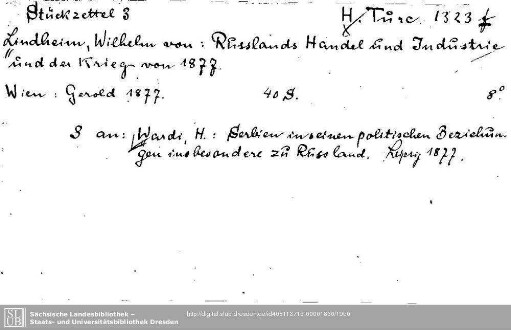 Stückzettel 3 H. Turc. 1323 f
Lindheim, Wilhelm von: Russlands Handel und Industrie
und der Krieg von 1877.
Wien: Gerold 1877. 40 S. 8°
3 an: Wardi, H.: Serbien in seinen politischen Beziehun-
gen insbesondere zu Russland. Leipzig 1877.
Sächsische Landesbibliothek –
Staats- und Universitätsbibliothek Dresden